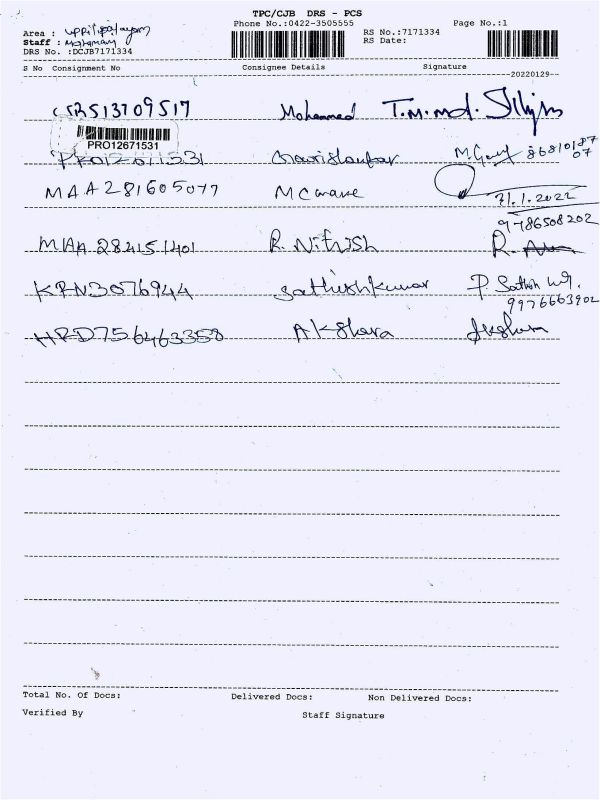 TPC/CJB DRS - PCS
Phone No.:0422-3505555 Page No.:1
Area : uppilipalayam
Staff :
DRS No. :DCJB7171334
RS No.:7171334
RS Date:
S No Consignment No Consignee Details Signature
20220129
CSR513109517 Mohammed T.M.Md.
PRO12671531
PRO12671531 86810187
07
MAA281605077
31.1.2022
9786508202
MAA 284151401 R. Nithish R.
KRN3076944 Sathishkumar P. Sathish
9976663902
HRD756463358 Akshara Akshara
Total No. Of Docs: Delivered Docs: Non Delivered Docs:
Verified By Staff Signature